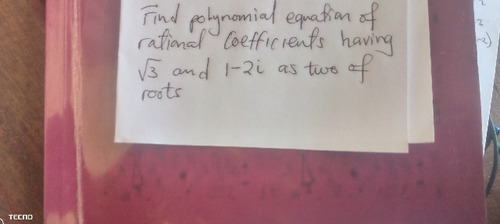 Find polynomial equation of
rational Coefficients having
√3 and 1-2i as two of
roots
TECNO